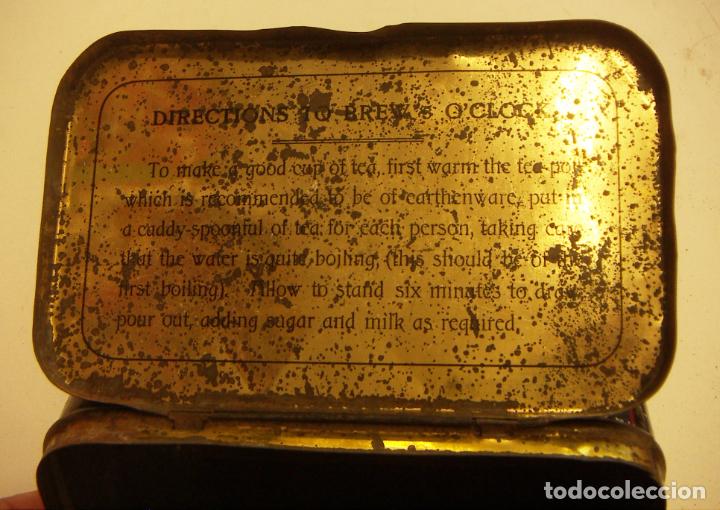 DIRECTIONS TO BREW 5 O'CLOCK
To make a good cup of tea, first warm the tea-po
which is recommended to be of earthenware, put in
a caddy-spoonful of tea for each person, taking
that the water is quite boiling, (this should be of
first boiling). Allow to stand six minutes to draw
pour out, adding sugar and milk as required.
todocoleccion
todocoleccion.net